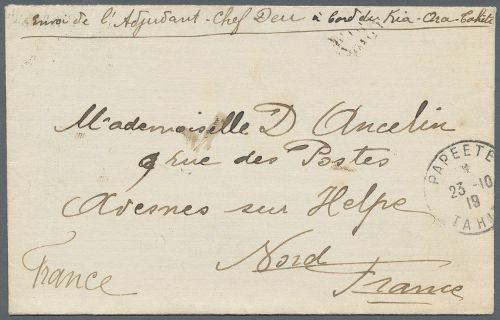 Envoi de l'Adjudant-Chef Deu à bord du Kia-Ora-Tahiti
Mademoiselle D Ancelin
9 rue des Postes
Avesnes sur Helpe
Nord
France
France
PAPEETE
23 -10
19
TAHI